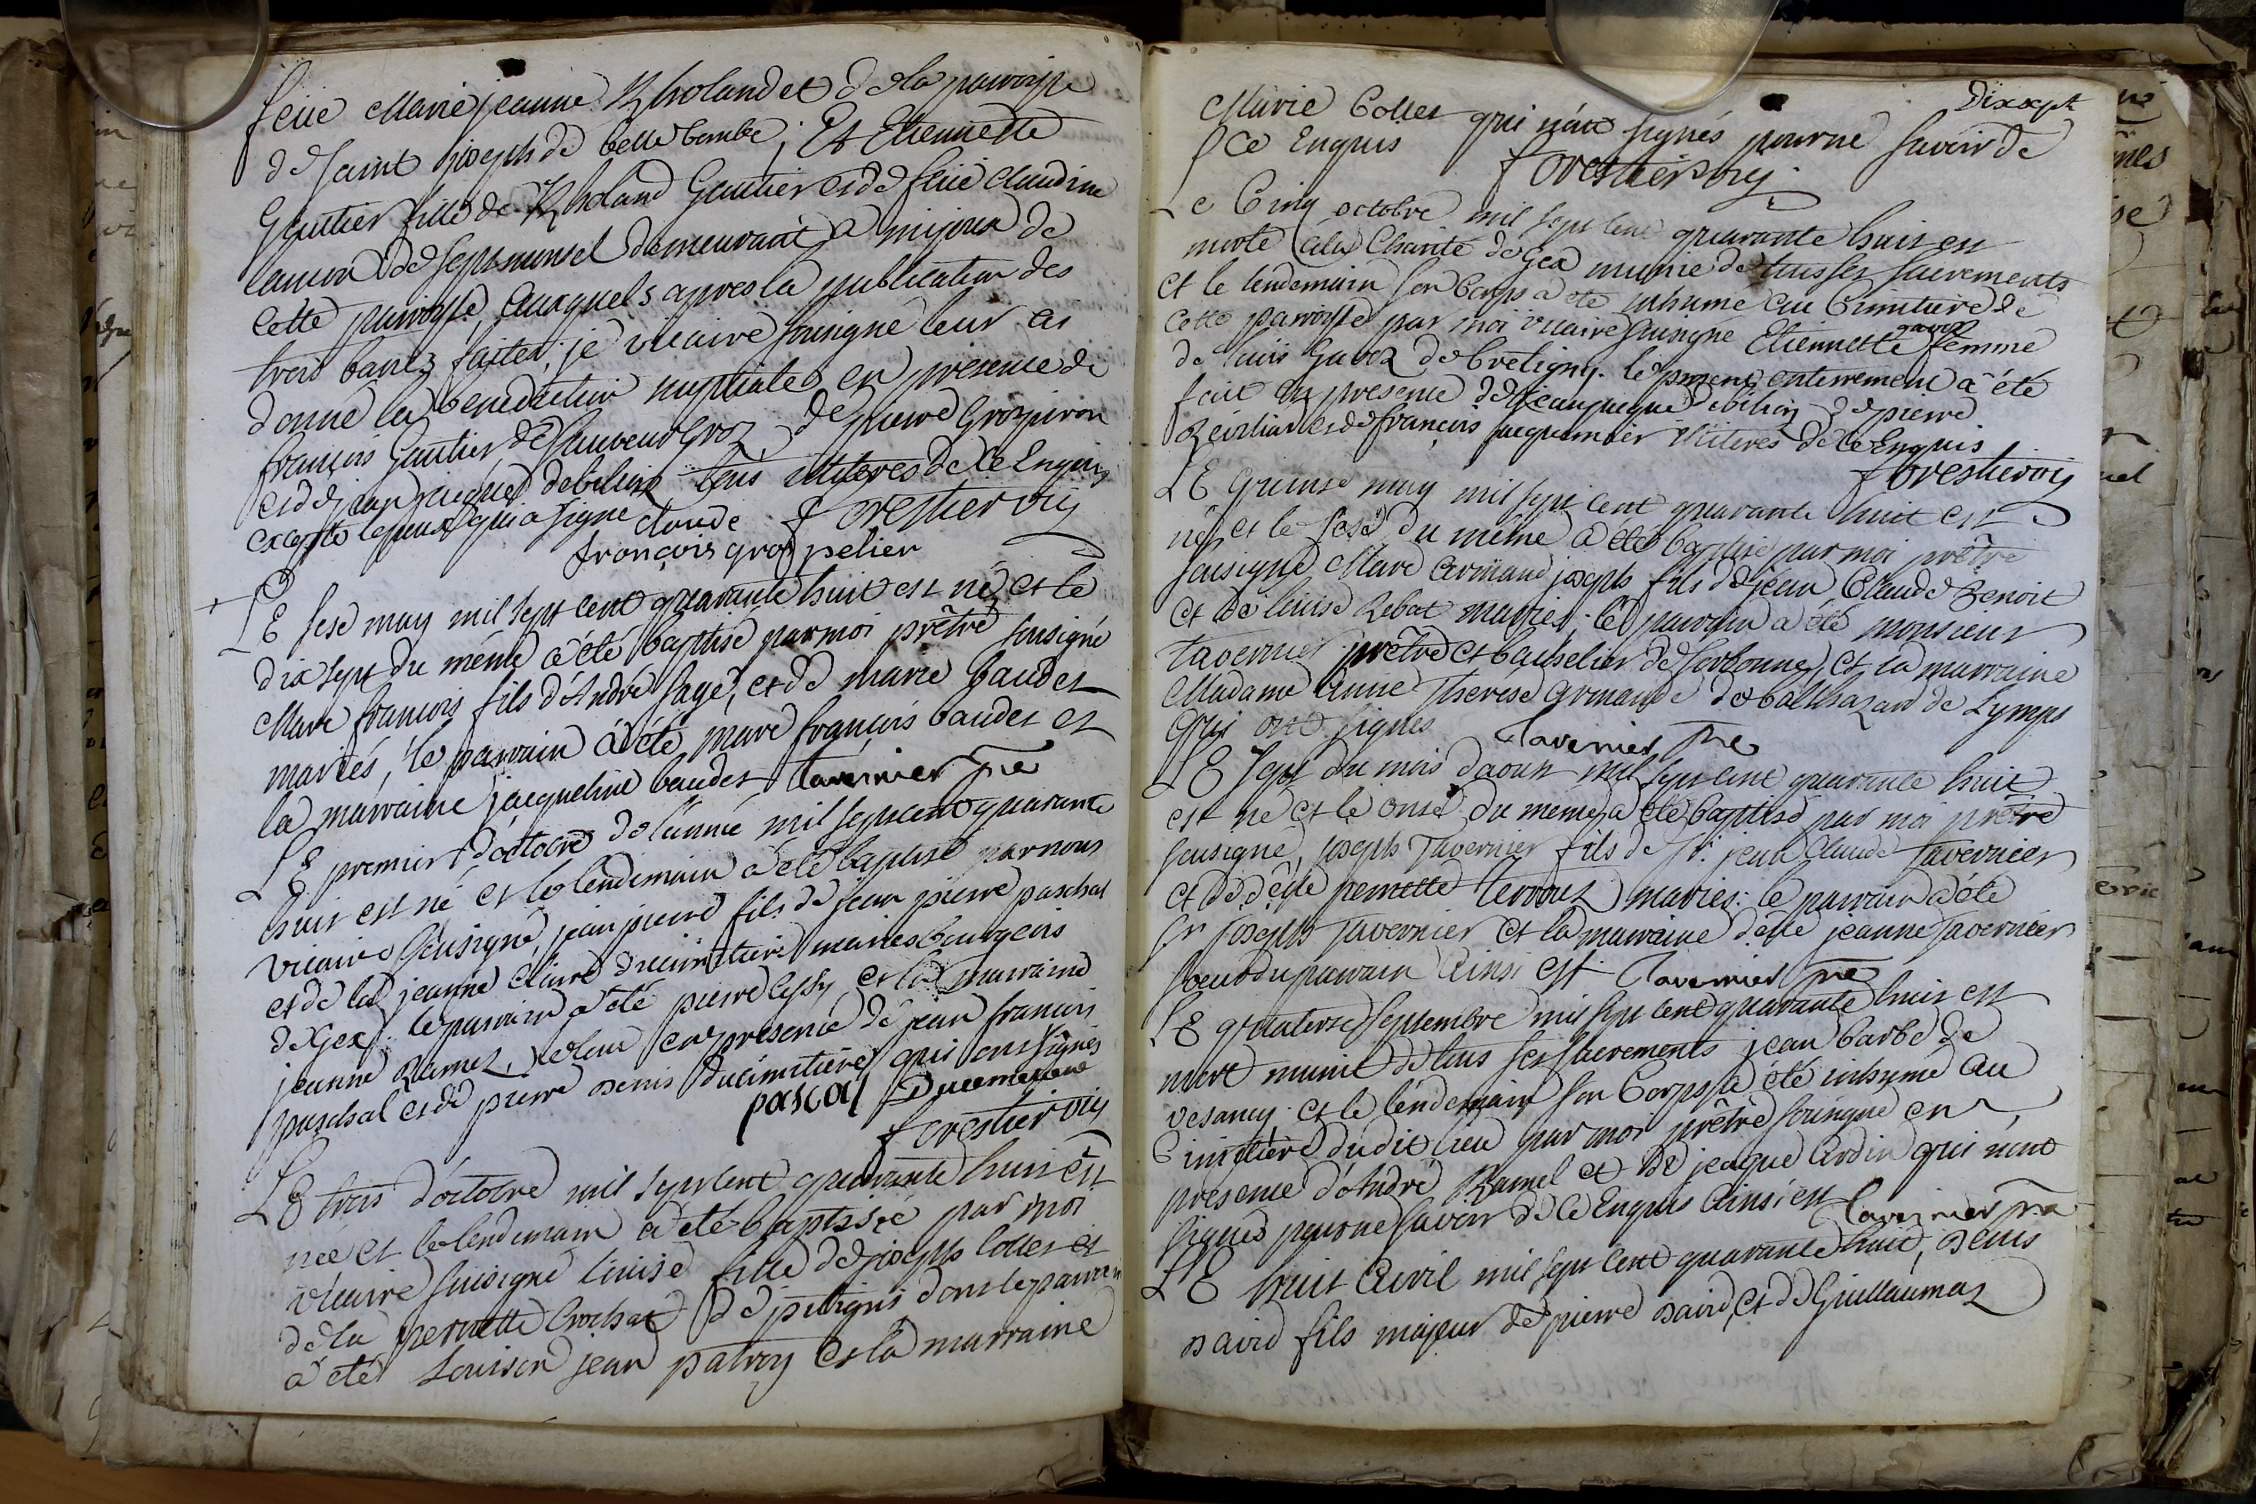 feüe Marie jeanne Rholandet de la parroisse
de saint joseph de belle Combe; Et Etiennette
Gauttier fille de Rholand Gautier et de feüe claudine
de septmonsel demeurant a mijoux de
Cette parroisse Auxquels apres la publication des
trois bans faites; je vicaire sousigné leur ai
donné la benediction nuptiale en presence de
françois Gautier de de pierre Grospiron
et de jean jacque debilion tous illiteres de ce Enquis
excepté qui a signé claude forestier vic
françois gros pelier
LE sese may mil sept cent quarante huit est né, et le
dix sept du même a été baptisé par moi prêtre sousigné
Marc françois fils d'André sage, et de marie baudet
mariés, le parrain a été marc françois baudet et
la marraine jacqueline baudet tavernier ptre
LE premier d'octobre de l'année mil sept cent quarante
huit est né et le lendemain a été baptisé par nous
vicaire sousigné, jean pierre fils de jean pierre paschal
et de la jeanne claire ducimetiere mariés bourgeois
de Gex: le parrain a été pierre et la marraine
jeanne Ramel, en presence de jean francois
paschal et de pierre denis ducimetiere qui ont signés
pascal Ducemetiere
forestier vic
LE trois d'octobre mil sept cent quarante huit est
née et le lendemain a été baptisée par moi
vicaire sousigné louise fille de joseph Collet et
de la pernette Crochat de pitegnis dont le parrain
a été Louison jean patroy et la marraine
Dixsept
Marie Collet qui n'ont signés pour ne savoir de
ce Enquis forestier vic
Le Cinq octobre mil sept cent quarante huit est
morte a la Charité de Gex munie de tous ses sacrements
et le lendemain son Corps a été inhumé au Cimitiere de
cette parroisse par moi vicaire sousigné Etiennette gavoz femme
de loüis Gavoz de bretigny. le present enterrement a été
fait en presence de jeanjacque debilion de pierre
et de françois jacquemier illiteres de ce Enquis
forestier vic
LE quinse may mil sept cent quarante huit est
né, et le sese du même a été baptisé par moi prêtre
sousigné Marc Armand joseph fils de jean Claude Benoit
et de loüise Rebat mariés: le parrain a été monsieur
tavernier prêtre et bachelier de sorbonne, et la marraine
Madame anne Therese Armande de balthazard de
qui ont signés Tavernier ptre
LE sept du mois d'aoust mil sept cent quarante huit
est né et le onse du meme, a été baptisé par moi prêtre
sousigné, joseph Tavernier fils de Sr. jean claude Tavernier
et de delle pernette mariés: le parrain a été
Sr joseph Tavernier et la marraine delle jeanne Tavernier
soeur du parrain Ainsi est Tavernier ptre
LE quatorze septembre mil sept cent quarante huit est
mort munit de tous ses sacrements jean barbe de
vesancy et le lendemain son Corps a été inhumé au
Cimitiere dudit lieu par moi prêtre sousigné en
presence d'André Ramel et de jacque Ardin qui n'ont
signés pour ne savoir de ce Enquis Ainsi est Tavernier ptre
LE huit Avril mil sept cent quarante huit, Denis
David fils majeur de pierre David, et de Guillaumaz